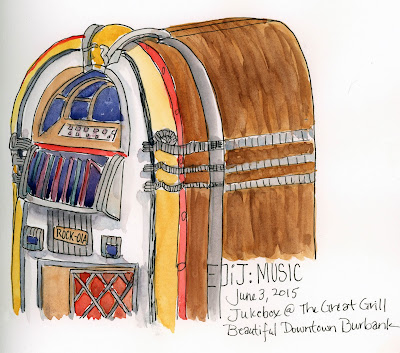 ROCK-OLA
EDiJ: MUSIC
June 3, 2015
Jukebox @ The Great Grill
Beautiful Downtown Burbank